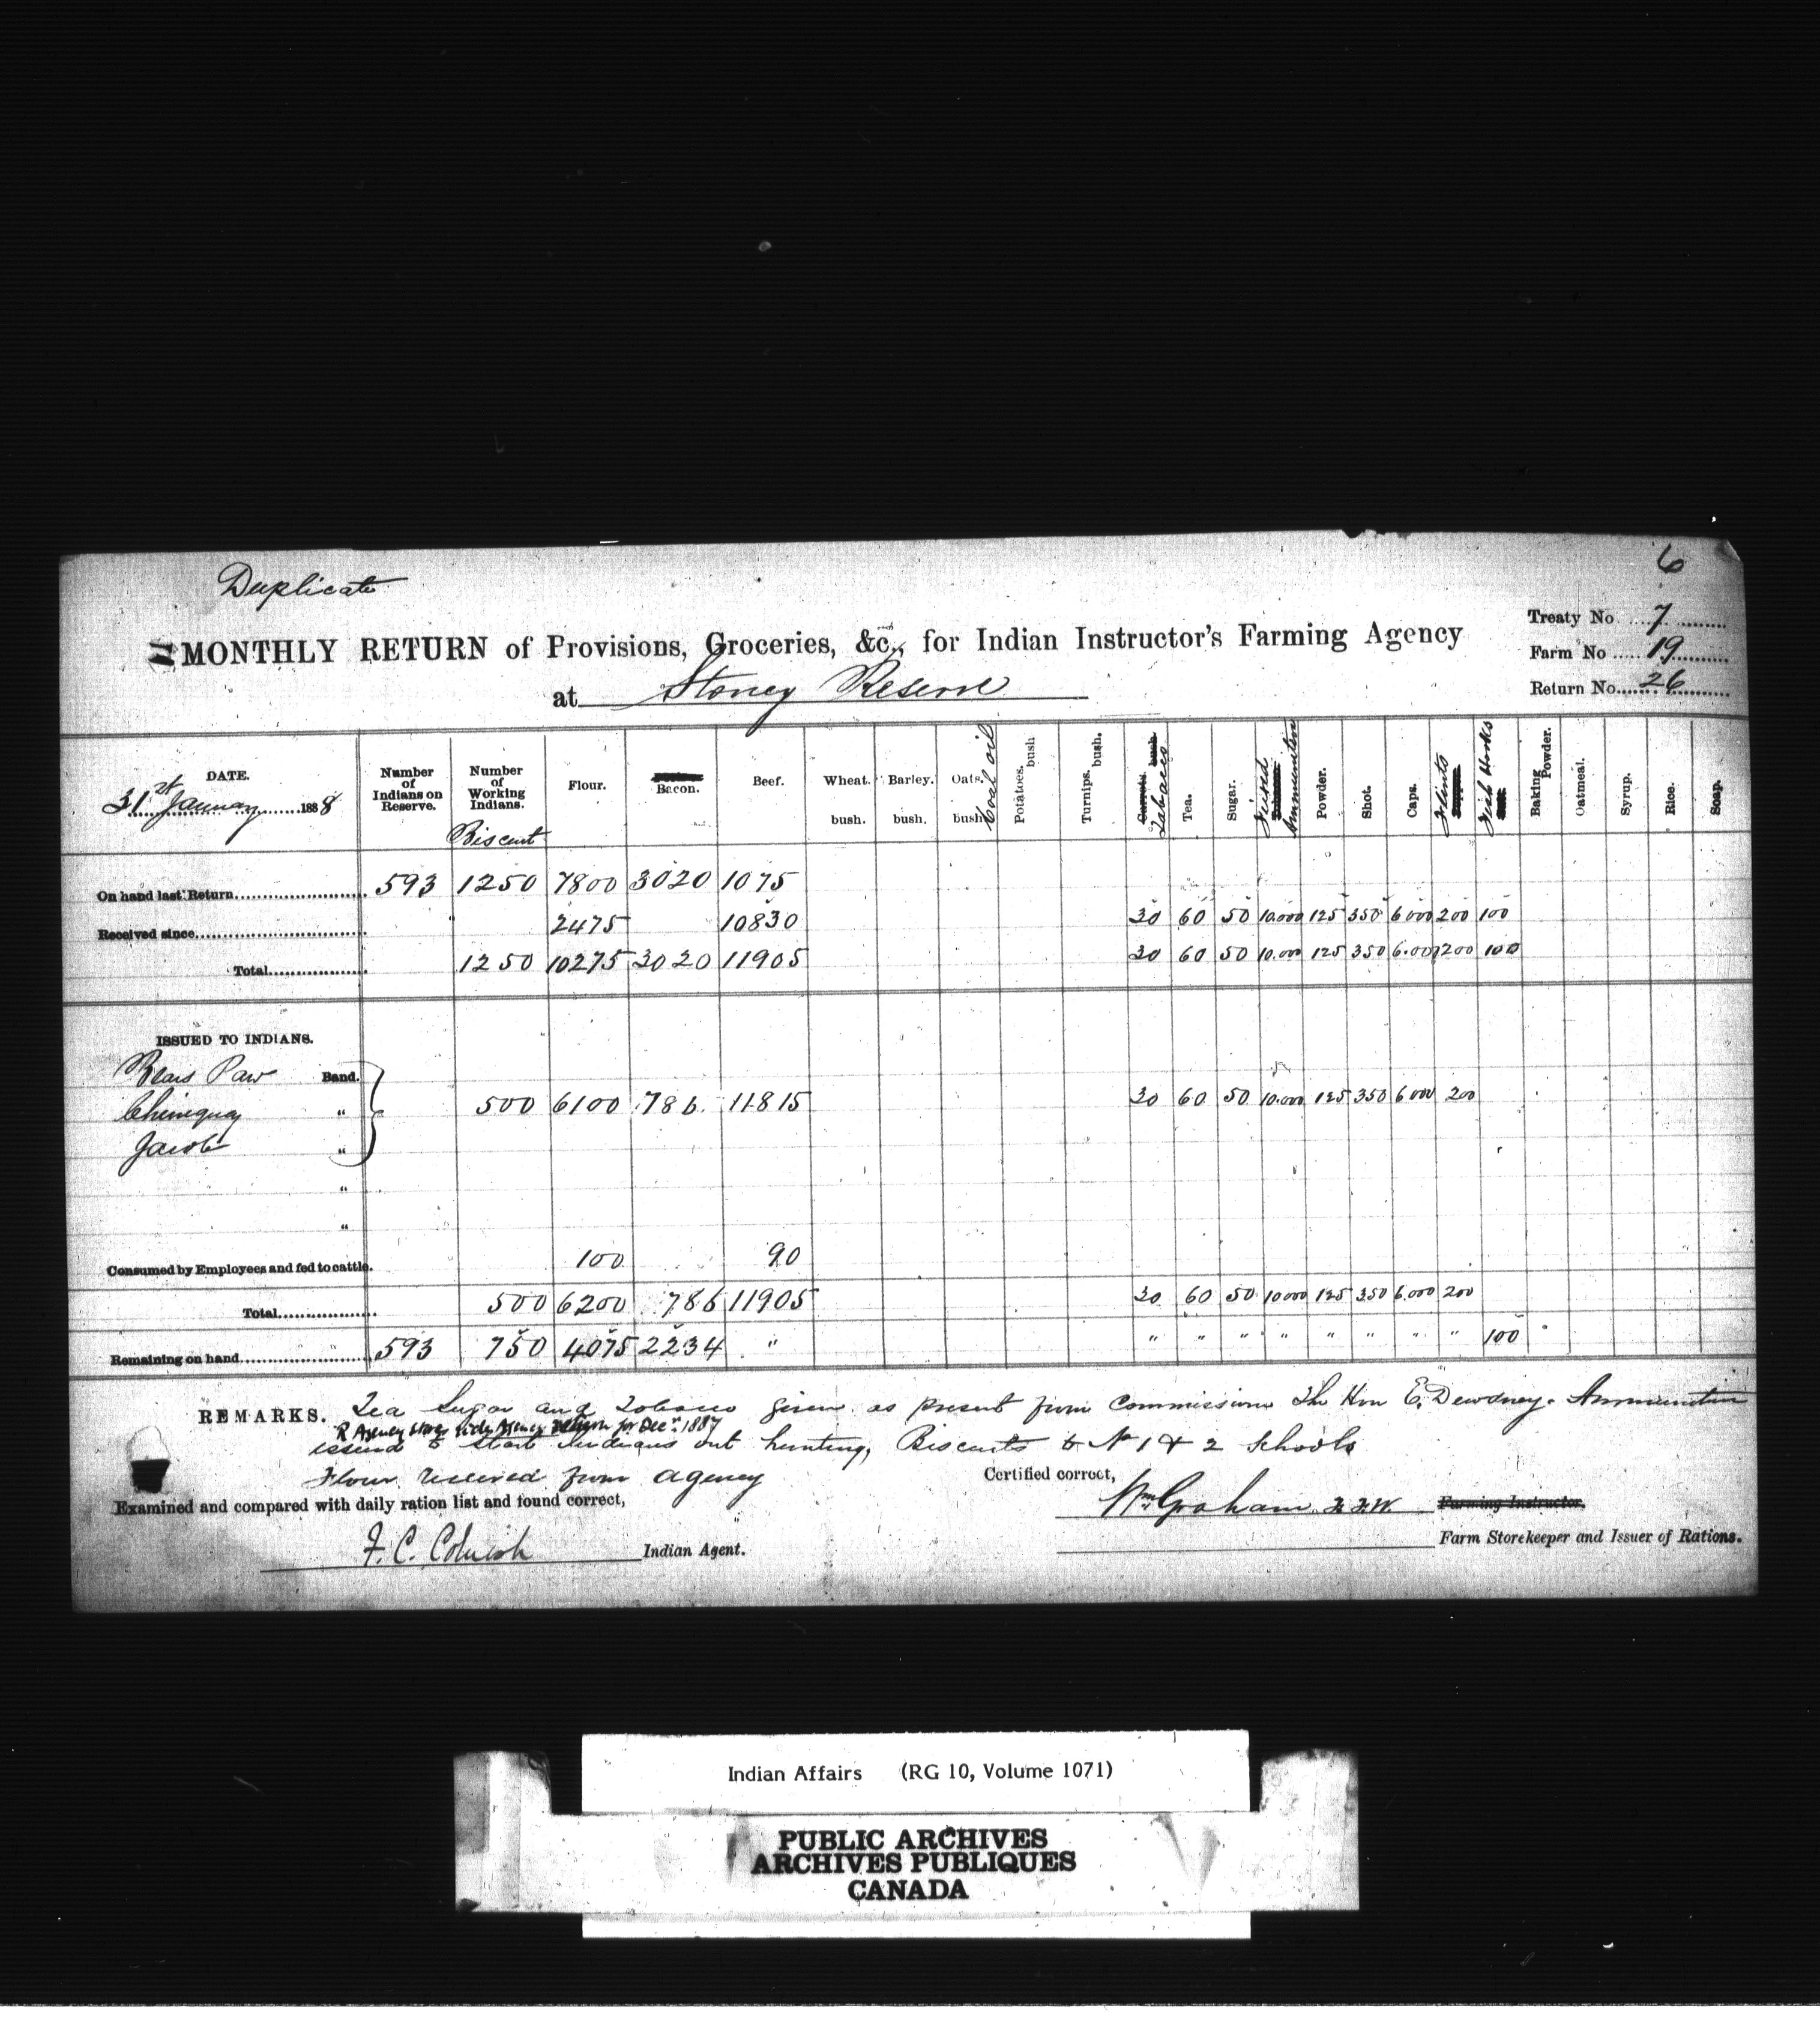 6
Duplicate
Treaty No 7
MONTHLY RETURN of Provisions, Groceries, &c., for Indian Instructor's Farming Agency
Farm No 19
at Stoney Reserve
Return No. 26
DATE. 31st January 1888
Number of Indians on Reserve. Number of Working Indians. Biscuit Flour. Bacon. Beef. Wheat. bush. Barley. bush. Oats. bush Coal oil Potatoes. bush Turnips. bush. Carrots bush Tobacco Tea. Sugar. Fixed Ammunition Powder. Shot. Caps. Flints Fish Hooks Baking Powder. Oatmeal. Syrup. Rice. Soap.
On hand last Return 593 1250 7800 3020 1075
Received since 2475 10830 30 60 50 10.000 125 350 6000 200 100
Total 1250 10275 3020 11905 30 60 50 10.000 125 350 6.000 200 100
ISSUED TO INDIANS.
Bears Paw Band.
Chiniquay " 500 6100 786 11815 30 60 50 10.000 125 350 6000 200
Jacob "
"
"
Consumed by Employees and fed to cattle. 100 90
Total 500 6200 786 11905 30 60 50 10000 125 350 6.000 200
Remaining on hand 593 750 4075 2234 " " " " " " " " " 100
REMARKS. Tea Sugar and Tobacco given as present from Commissioner The Hon E. Dewdney. Ammunition
R Agency Stores vide Agency Return for Decr. 1887
issued to start Indians out hunting, Biscuits to No 1 & 2 Schools
Flour received from agency
Certified correct,
Examined and compared with daily ration list and found correct,
Wm Graham Farming Instructor.
F. C. Cornish Indian Agent.
Farm Storekeeper and Issuer of Rations.
Indian Affairs (RG 10, Volume 1071)
PUBLIC ARCHIVES
ARCHIVES PUBLIQUES
CANADA